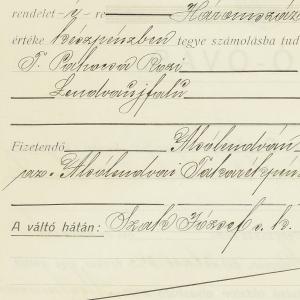 rendelet-y-re Háromszáz
értéke készpénzben tegye számolásba tud
T. Pahocsa Rozi
Lendvaujfalu
Fizetendő Alsólendván
az. Alsólendvai Takarékpén
A váltó hátán: Szabó József s. k.